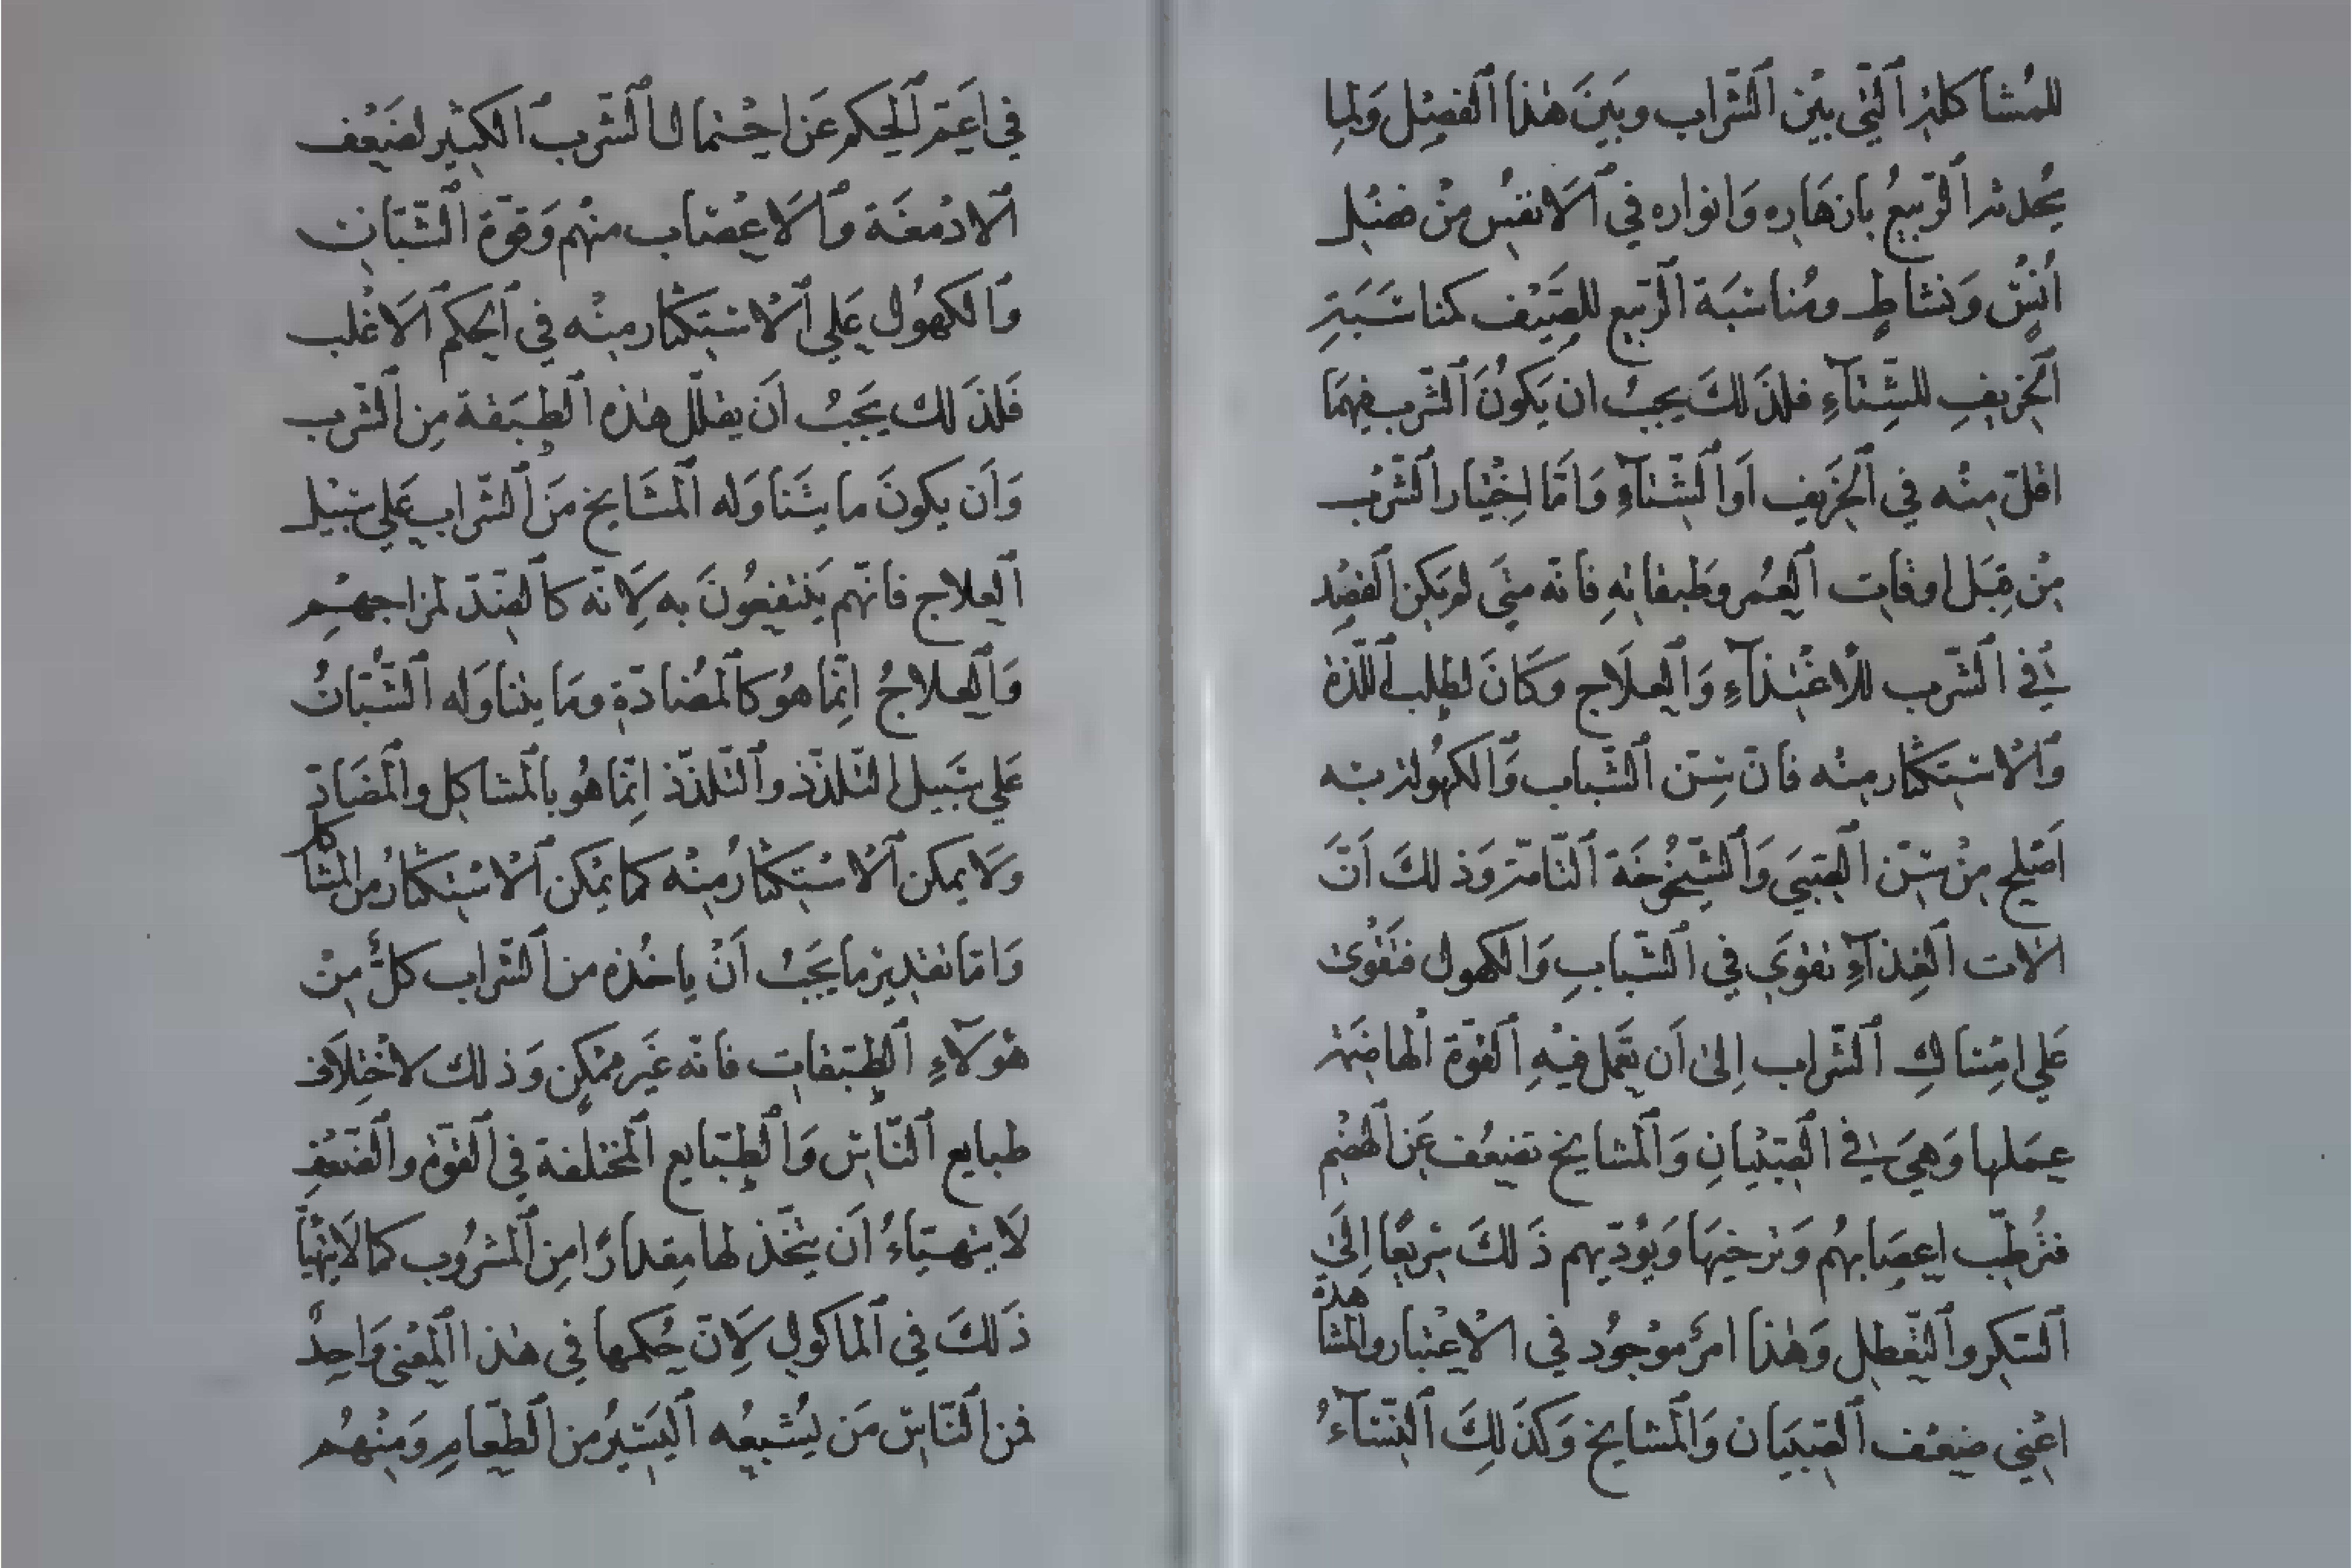 للمُشاكلة ٱلتي بين ٱلشّراب وبَينَ هٰذا ٱلفصْل وَلما
يُحدثه ٱلرّبيعُ بازهَاره وَانواره في ٱلانفسُ منْ فضْل
اُنسٍ وَنشاطٍ ومُناسبَة ٱلرّبيع للصَّيْف كمناسَبَةِ
ٱلخريفِ للشّتآءِ فلذَلكَ يجبُ ان يَكونَ ٱلشّرب فيهمَا
اقلّ منْه في ٱلخَريف اَو ٱلشّتآءِ وَامّا اختْيار ٱلشّربُ
منْ قِبَل اوقات ٱلعُمر وَطبقاتهِ فانّه متَى لم يَكن ٱلقصْد
في ٱلشّرب للاغْتذآءِ وَٱلعلَاج وَكَانَ لطلب ٱللّذة
وَٱلاسْتكثار منْه فانّ سِنّ ٱلشّباب وَٱلكهُولة به
اَصْلح منْ سنّ ٱلصّبَى وَٱلشّيخُوخَة ٱلتّامّة وَذلكَ اَنّ
الات ٱلغِذآءِ تقوَى في ٱلشّبابِ وَالكهول فتقْوىٰ
عَلى امْسَاكِ ٱلشّراب اِلىٰ اَن تعَمل فيْهِ ٱلقوّة ٱلهاضمَة
عمَلها وَهيَ في ٱلصّبْيانِ وَٱلمشايخ تضعُف عَن ٱلهضْم
فترُطّب اعصَابهُم وَترخيهَا وَيُؤدّيهم ذَلكَ سَريعًا اِلىَ
ٱلسّكر وٱلتّعَطل وَهٰذا امرٌ موْجُود في الاعْتبار والمشاهدة
اعْني ضعْف ٱلصّبيَان وَٱلمشايخ وَكذَلِكَ ٱلنّسآءُ
في اَعَمّ ٱلحكم عَن احْتمال ٱلشّرب ٱلكثير لضَعْف
ٱلادْمغَة وَٱلَاعْصَاب منْهم وَقوّة ٱلشّبّان
وَٱلكهُول عَلي ٱلاسْتكثار منْه في ٱلحكم ٱلاَغْلب
فَلذَلك يَجبُ اَن يقلّل هٰذه ٱلطبَقة مِن ٱلشّرب
وَاَن يكونَ ما يتَنَاوَله ٱلمشَايخ مَن ٱلشّراب عَلي سَبْيل
ٱلعلاج فانّهم يَنْتفعُونَ به لَانّه كٱلضّدّ لمزاجهمْ
وَٱلعلاجُ اِنّمَا هُو كٱلمُضادّة وَمَا يتناوَله ٱلشّبّانُ
عَلي سَبيل التّلذّذ وٱلتّلذّذ اِنّما هُو بٱلمشاكل وٱلمضَادّ
وَلَا يمكن ٱلاسْتكثارُ منْه كما يُمْكن ٱلاسْتكثارُ من المشاكل
وَامّا تقديرُ ما يجَبُ اَنْ ياخُذه من ٱلشّراب كلٌّ منْ
هٰولَآءِ ٱلطّبقات فانّه غَير ممْكن وَذلك لاخْتلَاف
طبايع ٱلنّاس وَٱلطّبايع ٱلمختلفة في ٱلقوّة وٱلضّعْفِ
لَا يتهيّاءُ اَن يتّخَذ لها مقدارًا من ٱلمشرُوب كما لَا يتهيّأ
ذَلكَ في ٱلماكول لَانّ حُكمها في هٰذا ٱلمعْنى وَاحدٌ
فمن ٱلنّاسّ مَن يُشْبعُه ٱليَسيرُ من ٱلطّعَام وَمنْهُم